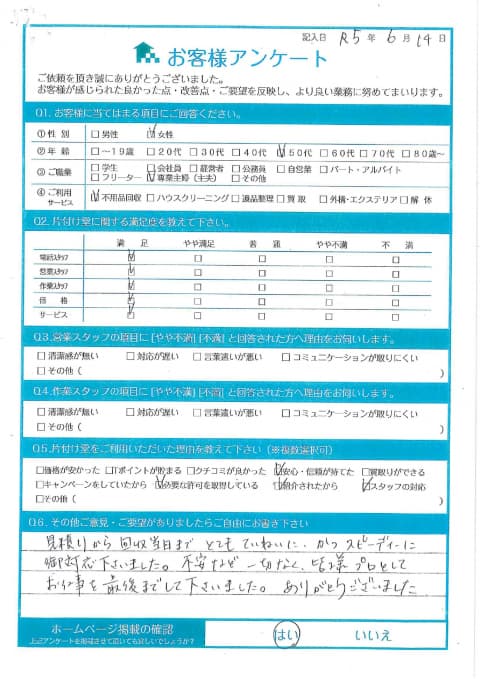 記入日 R5年 6月 14日
お客様アンケート
ご依頼を頂き誠にありがとうございました。
お客様が感じられた良かった点・改善点・ご要望を反映し、より良い業務に努めてまいります。
Q1. お客様に当てはまる項目にご回答ください。
①性 別 □男性 ☑女性
②年 齢 □～19歳 □20代 □30代 □40代 ☑50代 □60代 □70代 □80歳～
③ご職業 □学生 □会社員 □経営者 □公務員 □自営業 □パート・アルバイト
□フリーター ☑専業主婦(主夫) □その他
④ご利用サービス ☑不用品回収 □ハウスクリーニング □遺品整理 □買取 □外構・エクステリア □解体
Q2. 片付け堂に関する満足度を教えて下さい。
満足 やや満足 普通 やや不満 不満
電話スタッフ ☑ □ □ □ □
営業スタッフ ☑ □ □ □ □
作業スタッフ ☑ □ □ □ □
価格 ☑ □ □ □ □
サービス ☑ □ □ □ □
Q3. 営業スタッフの項目に [やや不満] [不満] と回答された方へ理由をお伺いします。
□清潔感が無い □対応が遅い □言葉遣いが悪い □コミュニケーションが取りにくい
□その他( )
Q4. 作業スタッフの項目に [やや不満] [不満] と回答された方へ理由をお伺いします。
□清潔感が無い □対応が遅い □言葉遣いが悪い □コミュニケーションが取りにくい
□その他( )
Q5. 片付け堂をご利用いただいた理由を教えて下さい（※複数選択可）
□価格が安かった □Tポイントが貯まる □クチコミが良かった ☑安心・信頼が持てた □買取りができる
□キャンペーンをしていたから ☑必要な許可を取得している ☑紹介されたから ☑スタッフの対応
□その他( )
Q6. その他ご意見・ご要望がありましたらご自由にお書き下さい
見積りから回収当日まで とても ていねいに、かつ スピーディーに
御対応下さいました。不安など一切なく、皆様 プロとして
お仕事を最後までして下さいました。ありがとうございました
ホームページ掲載の確認 はい いいえ
上記アンケートを掲載させて頂いても宜しいでしょうか?